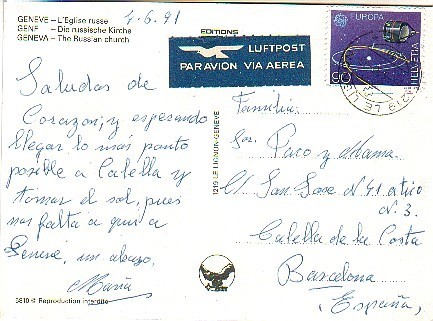 GENEVE – L'Eglise russe
GENF – Die russische Kirche
GENEVA – The Russian church
4.6.91
EDITIONS
LUFTPOST
PAR AVION VIA AEREA
EUROPA
90
HELVETIA
1219 LE LIGNON
Saludos de
Corazon; y esperando
llegar lo más pronto
posible a Calella y
tomar el sol, pues
nos falta a qui a
Geneve, un abrazo,
Maria
1219 LE LIGNON-GENEVE
Familia:
Sor. Paco y Mama.
C/ San Jose N 41 atico
N. 3.
Calella de la Costa
Barcelona
(España)
3810 © Reproduction interdite